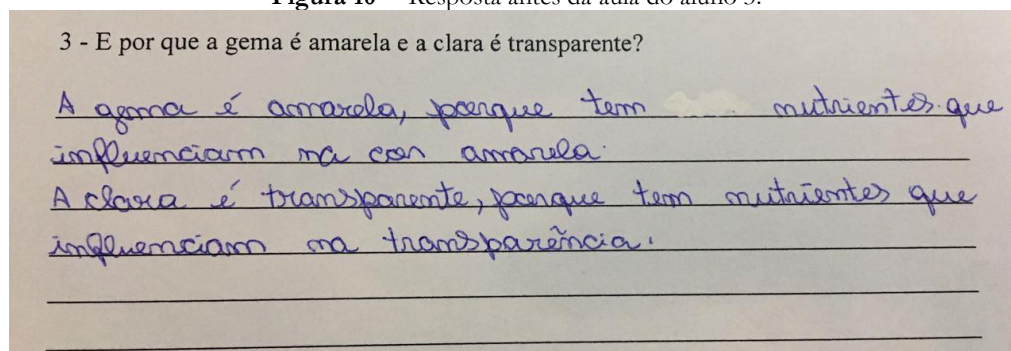 Figura 10 – Resposta antes da aula do aluno 3.
3 - E por que a gema é amarela e a clara é transparente?
A gema é amarela, porque tem nutrientes que
influenciam na cor amarela.
A clara é transparente, porque tem nutrientes que
influenciam na transparência.